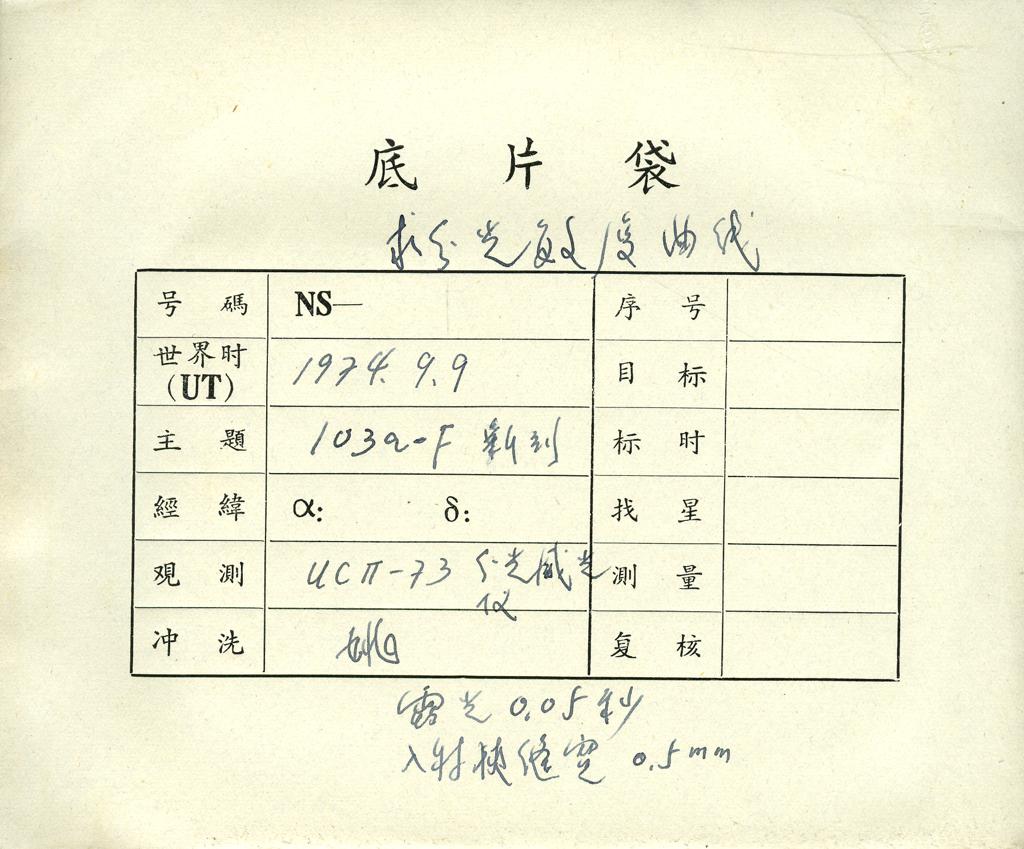 底 片 袋
求分光敏度曲线
号 碼 NS— 序 号
世界时 (UT) 1974.9.9 目 标
主 題 103a-F 标 时
經 緯 α: δ: 找 星
观 測 UCП-73 分光感光仪 測 量
冲 洗 复 核
露光 0.05 秒
入射狭缝宽 0.5mm